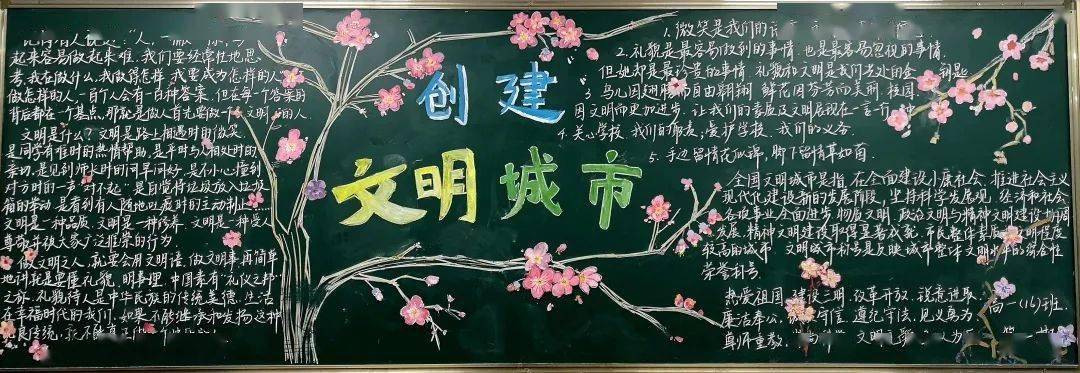 起来容易做起来难.我们要经常性地思
考,我在做什么,我做得怎样,我要成为怎样的人
做怎样的人,一百个人会有一百种答案,但在每一个答案的
背后都在一个基点,那就是做人首先要做一个文明的人.
文明是什么?文明是路上相遇时的微笑
是同学有难时的热情帮助,是平时与人相处时的
亲切,是见到师长时的问早问好,是不小心撞到
对方时的一声"对不起",是自觉将垃圾放入垃圾
箱的举动,是看到有人随地吐痰时的主动制止
文明是一种品质,文明是一种修养,文明是一种受人
尊敬并被大家广泛推崇的行为.
做文明之人,就要会用文明语,做文明事,再简单
地讲就是要懂礼貌,明事理.中国素有"礼仪之邦"
之称,礼貌待人是中华民族的传统美德.生活
在幸福时代的我们,如果不能继承和发扬这种
优良传统,就不能真正
创建
文明城市
1.微笑是我们的
2.礼貌是最容易做到的事情,也是最容易忽视的事情
但她却是最珍贵的事情.礼貌和文明是我们共处的金钥匙
3.鸟儿因翅膀而自由翱翔,鲜花因芬芳而美丽,校园
因文明而更加进步.让我们的素质及文明展现在一言一行
4.关心学校,我们的师表,爱护学校,我们的义务.
5.手边留情花似锦,脚下留情草如茵.
全国文明城市是指,在全面建设小康社会,推进社会主义
现代化建设新的发展阶段,坚持科学发展观,经济和社会
各项事业全面进步,物质文明,政治文明与精神文明建设协调
发展,精神文明建设取得显著成就,市民整体素质文明程度
较高的城市.文明城市称号是反映城市整体文明水平的综合性
荣誉称号.
热爱祖国,建设三明,改革开放,锐意进取.
廉洁奉公,诚实守信,遵纪守法,见义勇为.
尊师重教,
高一(16)班